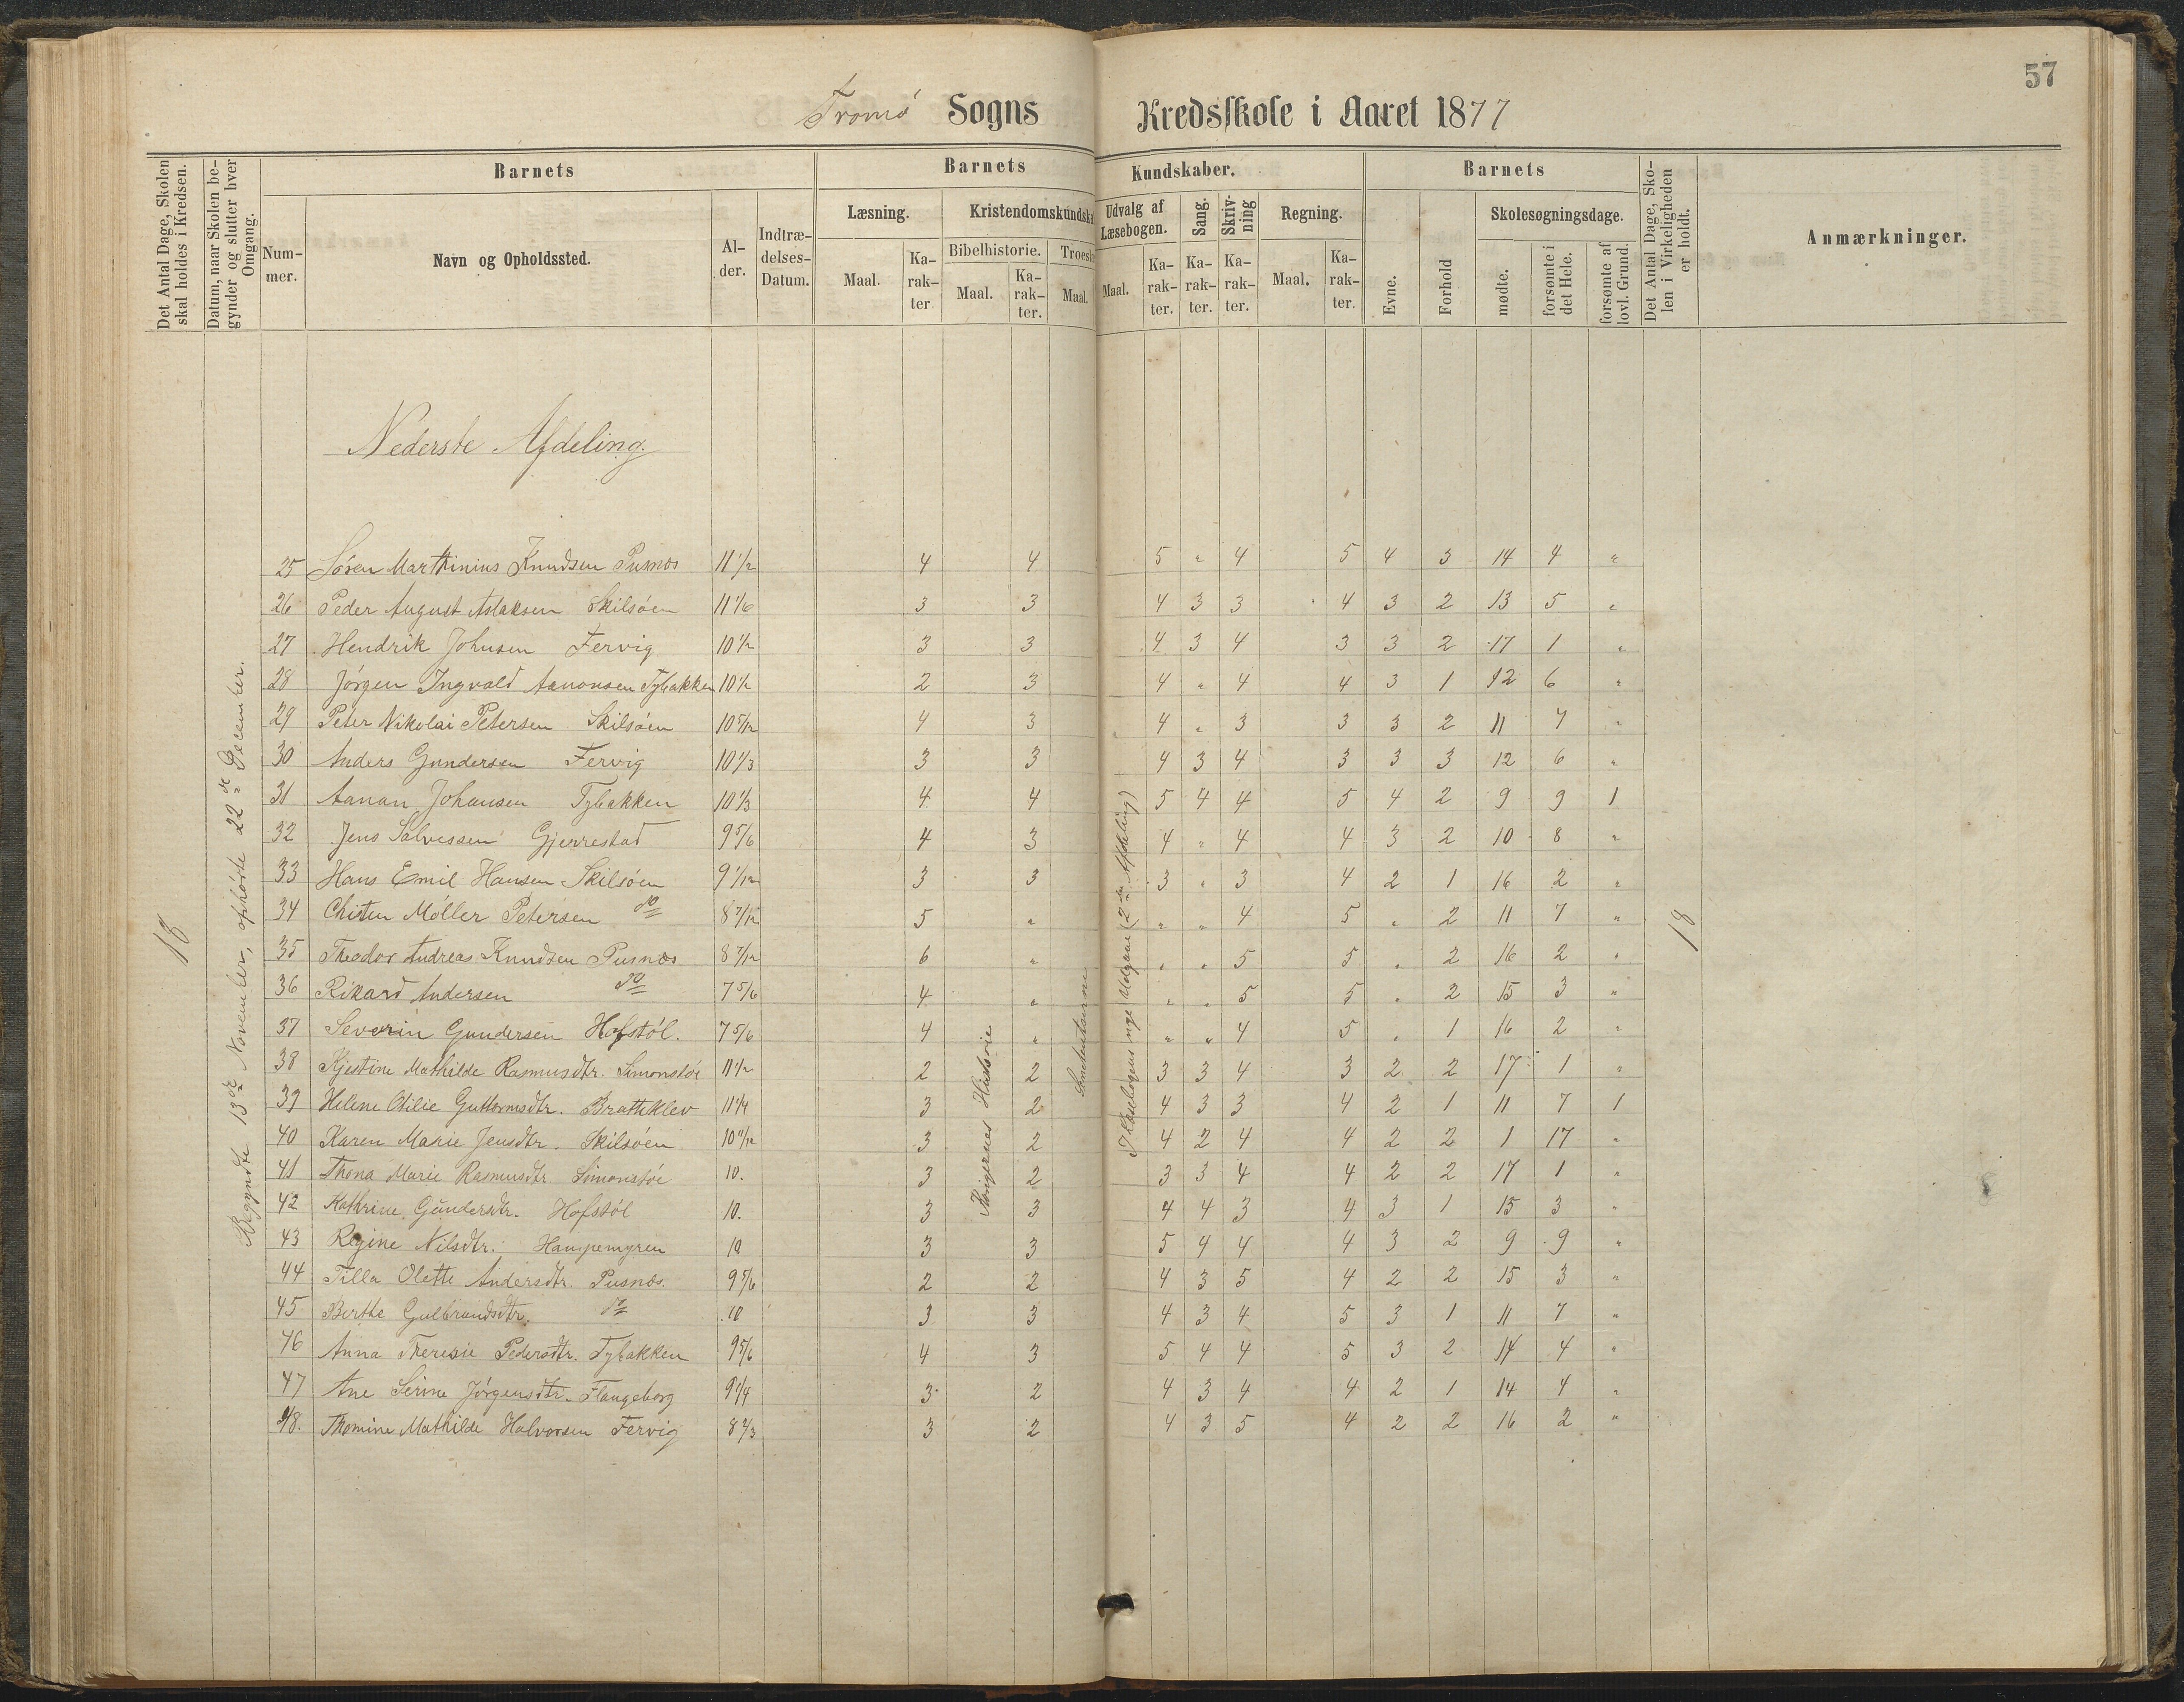 57
Tromø Sogns Kredsskole i Aaret 1877
Det Antal Dage, Skolen skal holdes i Kredsen.
Datum, naar Skolen begynder og slutter hver Omgang.
Barnets
Nummer.
Navn og Opholdssted.
Alder.
Indtrædelses-Datum.
Barnets Kundskaber.
Læsning.
Maal.
Karakter
Kristendomskundska
Bibelhistorie.
Maal.
Karakter.
Troeslæ
Maal.
Udvalg af Læsebogen.
Maal.
Karakter.
Sang.
Karakter.
Skrivning
Karakter.
Regning.
Maal.
Karakter.
Barnets
Evne.
Forhold
Skolesøgningsdage.
mødte.
forsømte i det Hele.
forsømte af lovl. Grund.
Det Antal Dage, Skolen i Virkeligheden er holdt.
Anmærkninger.
Nederste Afdeling.
18
Begyndte 13de November, ophørte 22de December.
Kongernes Historie
18
25 Søren Marthinius Knudsen Pusnæs 11 1/2 4 4 5 " 4 5 4 3 14 4 "
26 Peder August Aslaksen Skilsøen 11 1/6 3 3 4 3 3 4 3 2 13 5 "
27 Hendrik Johnsen Fervig 10 1/2 3 3 4 3 4 3 3 2 17 1 "
28 Jørgen Ingvald Aanonsen Tybakken 10 1/2 2 3 4 " 4 4 3 1 12 6 "
29 Peter Nikolai Petersen Skilsøen 10 5/12 4 3 4 " 3 3 3 2 11 7 "
30 Anders Gundersen Fervig 10 1/3 3 3 4 3 4 3 3 3 12 6 "
31 Aanon Johansen Tybakken 10 1/3 4 4 5 4 4 5 4 2 9 9 1
32 Jens Salvessen Gjerrestad 9 5/6 4 3 4 " 4 4 3 2 10 8 "
33 Hans Emil Hansen Skilsøen 9 1/12 3 3 3 " 3 4 2 1 16 2 "
34 Chisten Møller Petersen do 8 7/12 5 " " " 4 5 " 2 11 7 "
35 Theodor Andreas Knudsen Pusnæs 8 7/12 6 " " " 5 5 " 2 16 2 "
36 Rikard Andersen do 7 5/6 4 " " " 5 5 " 2 15 3 "
37 Severin Gundersen Hofstøl. 7 5/6 4 " " " 4 5 " 1 16 2 "
38 Kjestine Mathilde Rasmusdtr. Simonstøe 11 1/2 2 2 3 3 4 3 2 2 17 1 "
39 Helene Otilie Guttormsdtr. Bratteklev 11 1/4 3 2 4 3 3 4 2 1 11 7 1
40 Karen Marie Jensdtr. Skilsøen 10 11/12 3 2 4 2 4 4 2 2 1 17 "
41 Thona Marie Rasmusdtr Simonstøe 10. 3 2 3 3 4 4 2 2 17 1 "
42 Kathrine Gundersdtr. Hofstøl 10. 3 3 4 4 3 4 3 1 15 3 "
43 Regine Nilsdtr. Hampemyren 10 3 3 5 4 4 4 3 2 9 9 "
44 Tilla Olette Andersdtr. Pusnæs. 9 5/6 2 2 4 3 5 4 2 2 15 3 "
45 Berthe Gulbrandsdtr. do 10 3 3 4 3 4 5 3 1 11 7 "
46 Anna Theresie Pedersdtr. Tybakken 9 5/6 4 3 5 4 4 5 3 2 14 4 "
47 Ane Serine Jørgensdtr. Flangeborg 9 1/4 3 2 4 3 4 4 2 1 14 4 "
48. Thomine Mathilde Halvorsen Fervig 8 2/3 3 2 4 3 5 4 2 2 16 2 "